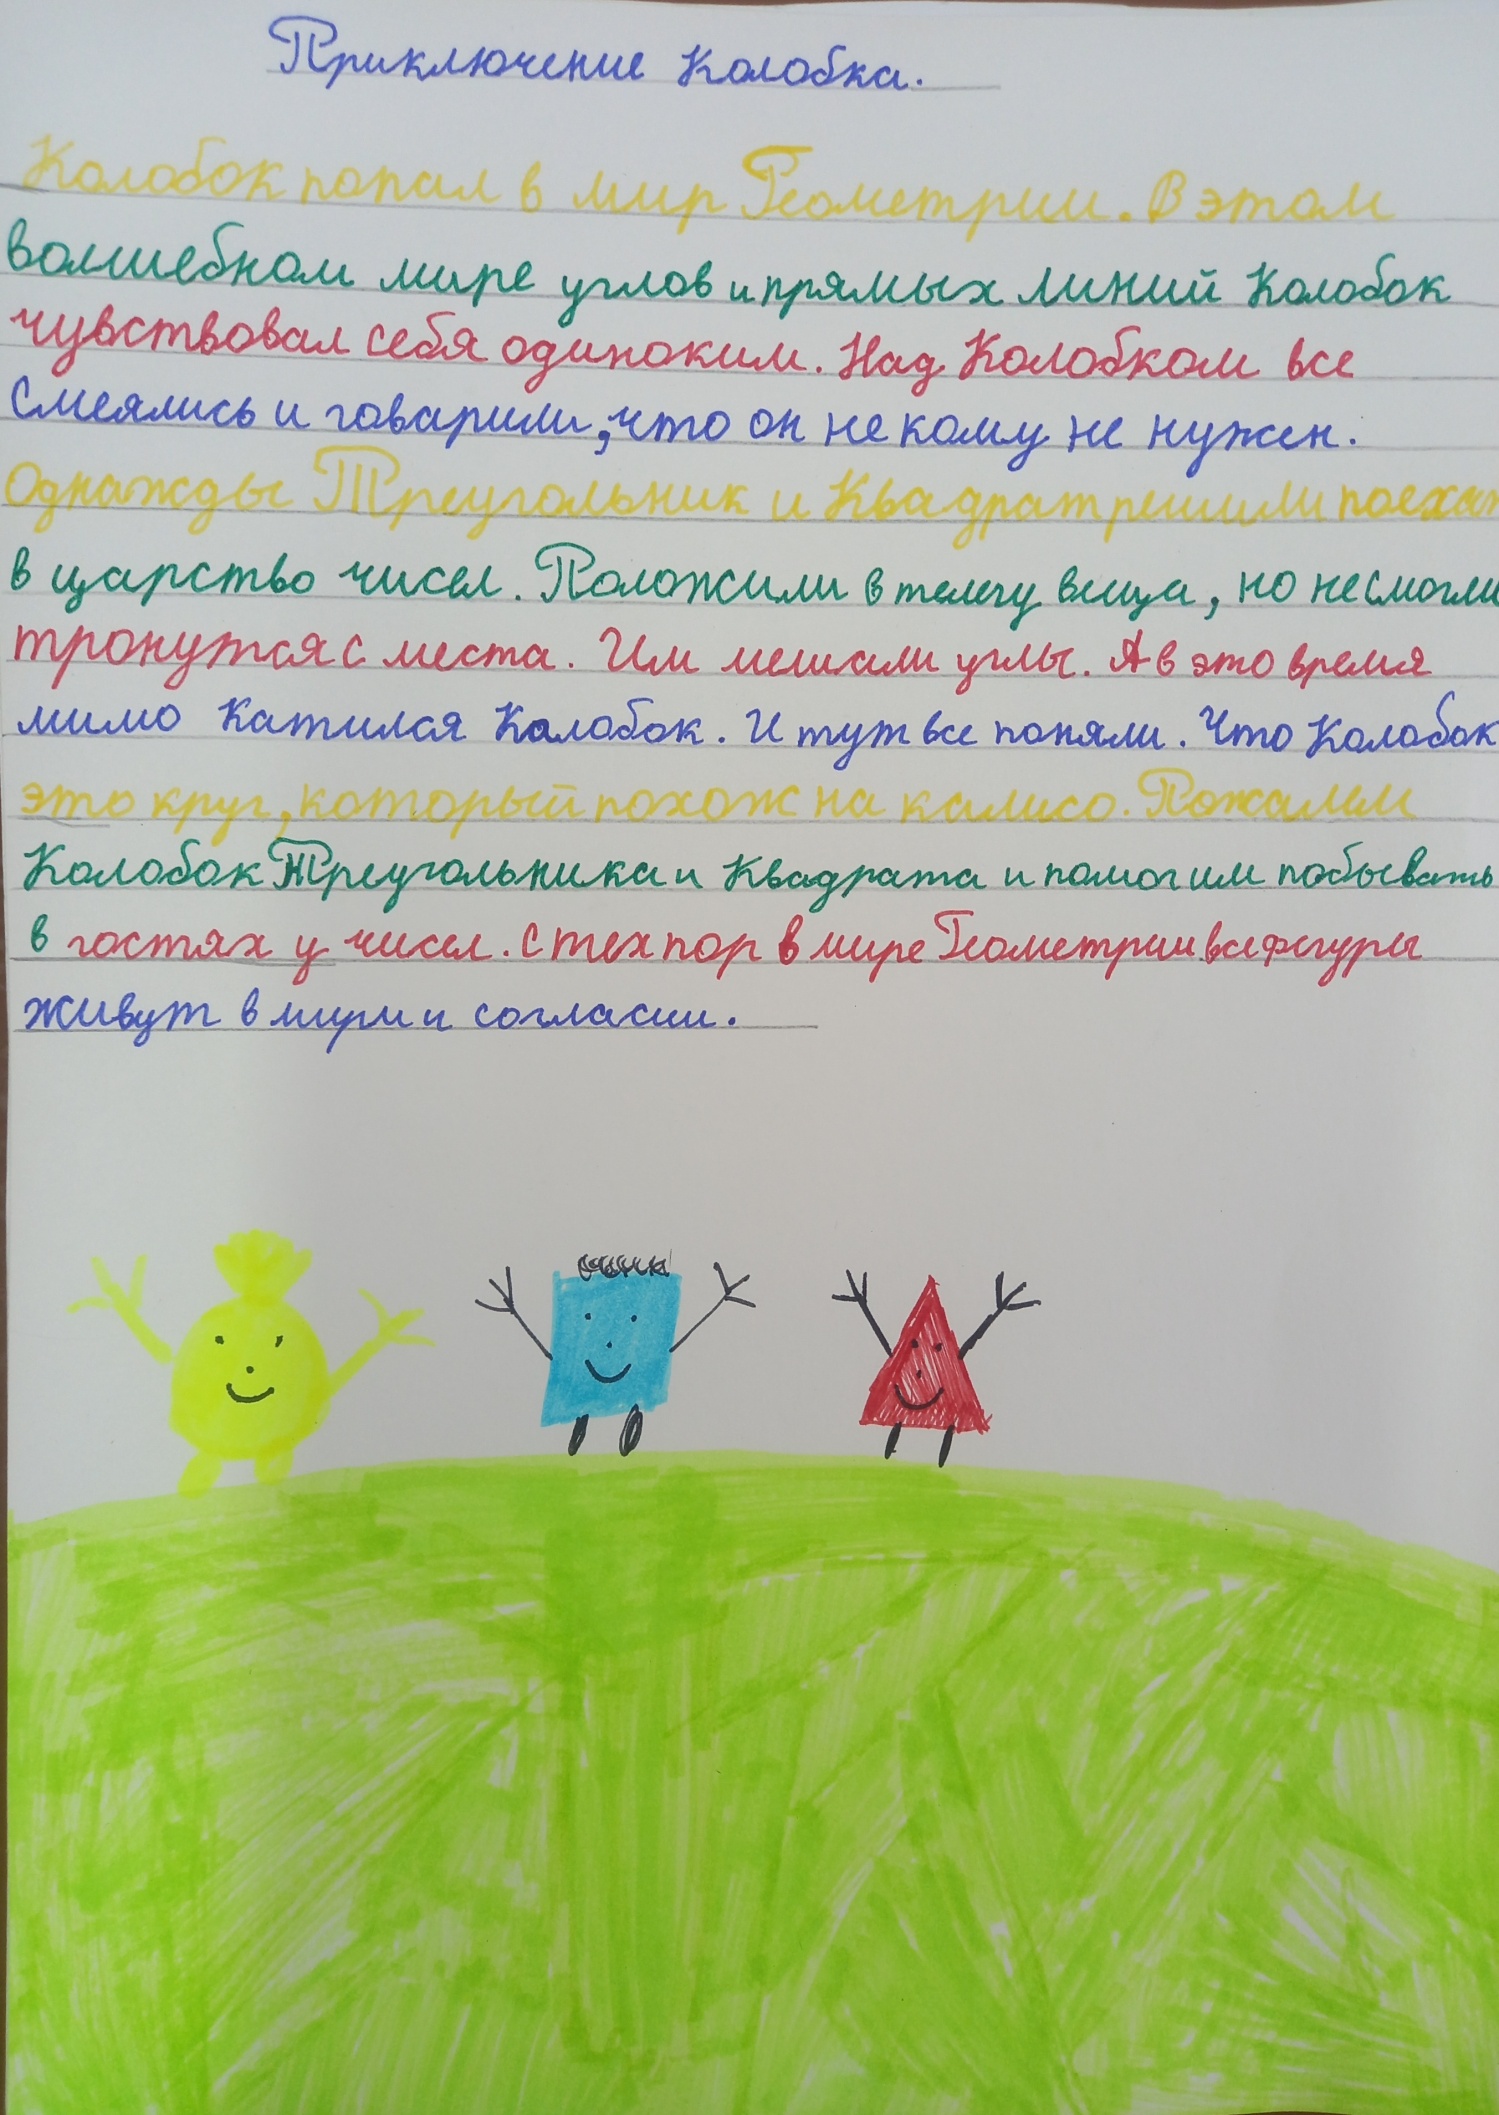 Приключение Колобка.
Колобок попал в мир Геометрии. В этом
волшебном мире углов и прямых линий Колобок
чувствовал себя одиноким. Над Колобком все
смеялись и говорили, что он не кому не нужен.
Однажды Треугольник и Квадрат решили поехат
в царство чисел. Положили в телегу веща, но не смогли
тронутся с места. Им мешали углы. А в это время
мимо катился Колобок. И тут все поняли. Что Колобок
это круг, который похож на калисо. Пожалел
Колобок Треугольника и Квадрата и помог им побывать
в гостях у чисел. С тех пор в мире Геометрии все фигуры
живут в мири и согласии.